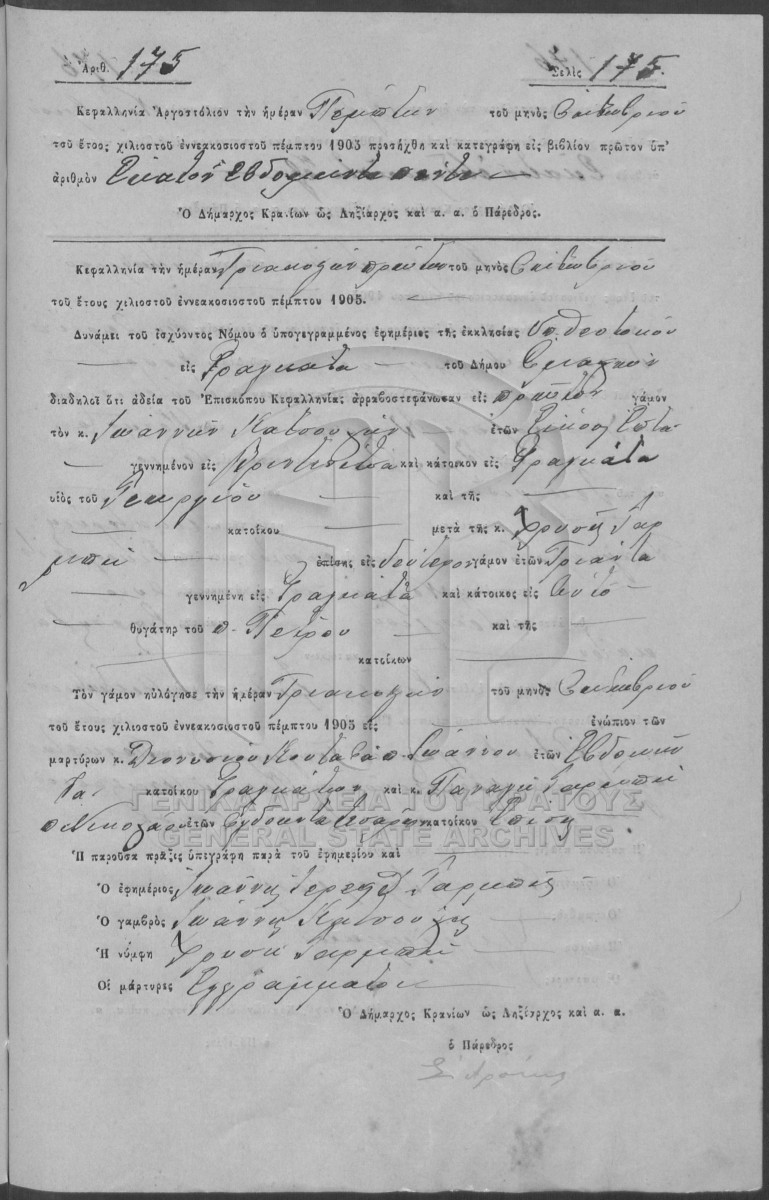 Ἀριθ. 175 Σελὶς 175.
Κεφαλληνία Ἀργοστόλιον τὴν ἡμέραν Πέμπτην τοῦ μηνὸς
τοῦ ἔτους χιλιοστοῦ ἐννεακοσιοστοῦ πέμπτου 1905 προσήχθη καὶ κατεγράφη εἰς βιβλίον πρῶτον ὑπ'
ἀριθμὸν Ἑκατὸν ἑβδομήκοντα πέντε
Ὁ Δήμαρχος Κρανίων ὡς Ληξίαρχος καὶ α. α. ὁ Πάρεδρος.
Κεφαλληνία τὴν ἡμέραν Τριακοστὴν πρώτην τοῦ μηνὸς
τοῦ ἔτους χιλιοστοῦ ἐννεακοσιοστοῦ πέμπτου 1905.
Δυνάμει τοῦ ἰσχύοντος Νόμου ὁ ὑπογεγραμμένος ἐφημέριος τῆς ἐκκλησίας
εἰς Φραγκάτα τοῦ Δήμου
διαδηλοῖ ὅτι ἀδείᾳ τοῦ Ἐπισκόπου Κεφαλληνίας ἀρραβοστεφάνωσαν εἰς πρῶτον γάμον
τὸν κ. Ἰωάννην ἐτῶν Εἴκοσι ἑπτὰ
γεννημένον εἰς καὶ κάτοικον εἰς Φραγκάτα
υἱὸς τοῦ Γεωργίου καὶ τῆς
κατοίκου μετὰ τῆς κ. Χρυσῆς Γαρ
μπῆ ἐπίσης εἰς δεύτερον γάμον ἐτῶν Τριάντα
γεννημένη εἰς Φραγκάτα καὶ κάτοικος εἰς
θυγάτηρ τοῦ π. Πέτρου καὶ τῆς
κατοίκων
Τὸν γάμον ηὐλόγησε τὴν ἡμέραν Τριακοστὴν τοῦ μηνὸς
τοῦ ἔτους χιλιοστοῦ ἐννεακοσιοστοῦ πέμπτου 1905 εἰς ἐνώπιον τῶν
μαρτύρων κ. Διονυσίου π. Ἰωάννου ἐτῶν Ἑβδομήν
τα κατοίκου Φραγκάτων καὶ κ. Παναγῆ Γαρμπῆ
π. Νικολάου ἐτῶν κατοίκου Ἐπίσης
ΓΕΝΙΚΑ ΑΡΧΕΙΑ ΤΟΥ ΚΡΑΤΟΥΣ
GENERAL STATE ARCHIVES
Ἡ παροῦσα πρᾶξις ὑπεγράφη παρὰ τοῦ ἐφημερίου καὶ
Ὁ ἐφημέριος Ἰωάννης Ἱερεὺς Γαρμπῆς
Ὁ γαμβρὸς Ἰωάννης
Ἡ νύμφη Χρυσῆ Γαρμπῆ
Οἱ μάρτυρες
Ὁ Δήμαρχος Κρανίων ὡς Ληξίαρχος καὶ α. α.
ὁ Πάρεδρος